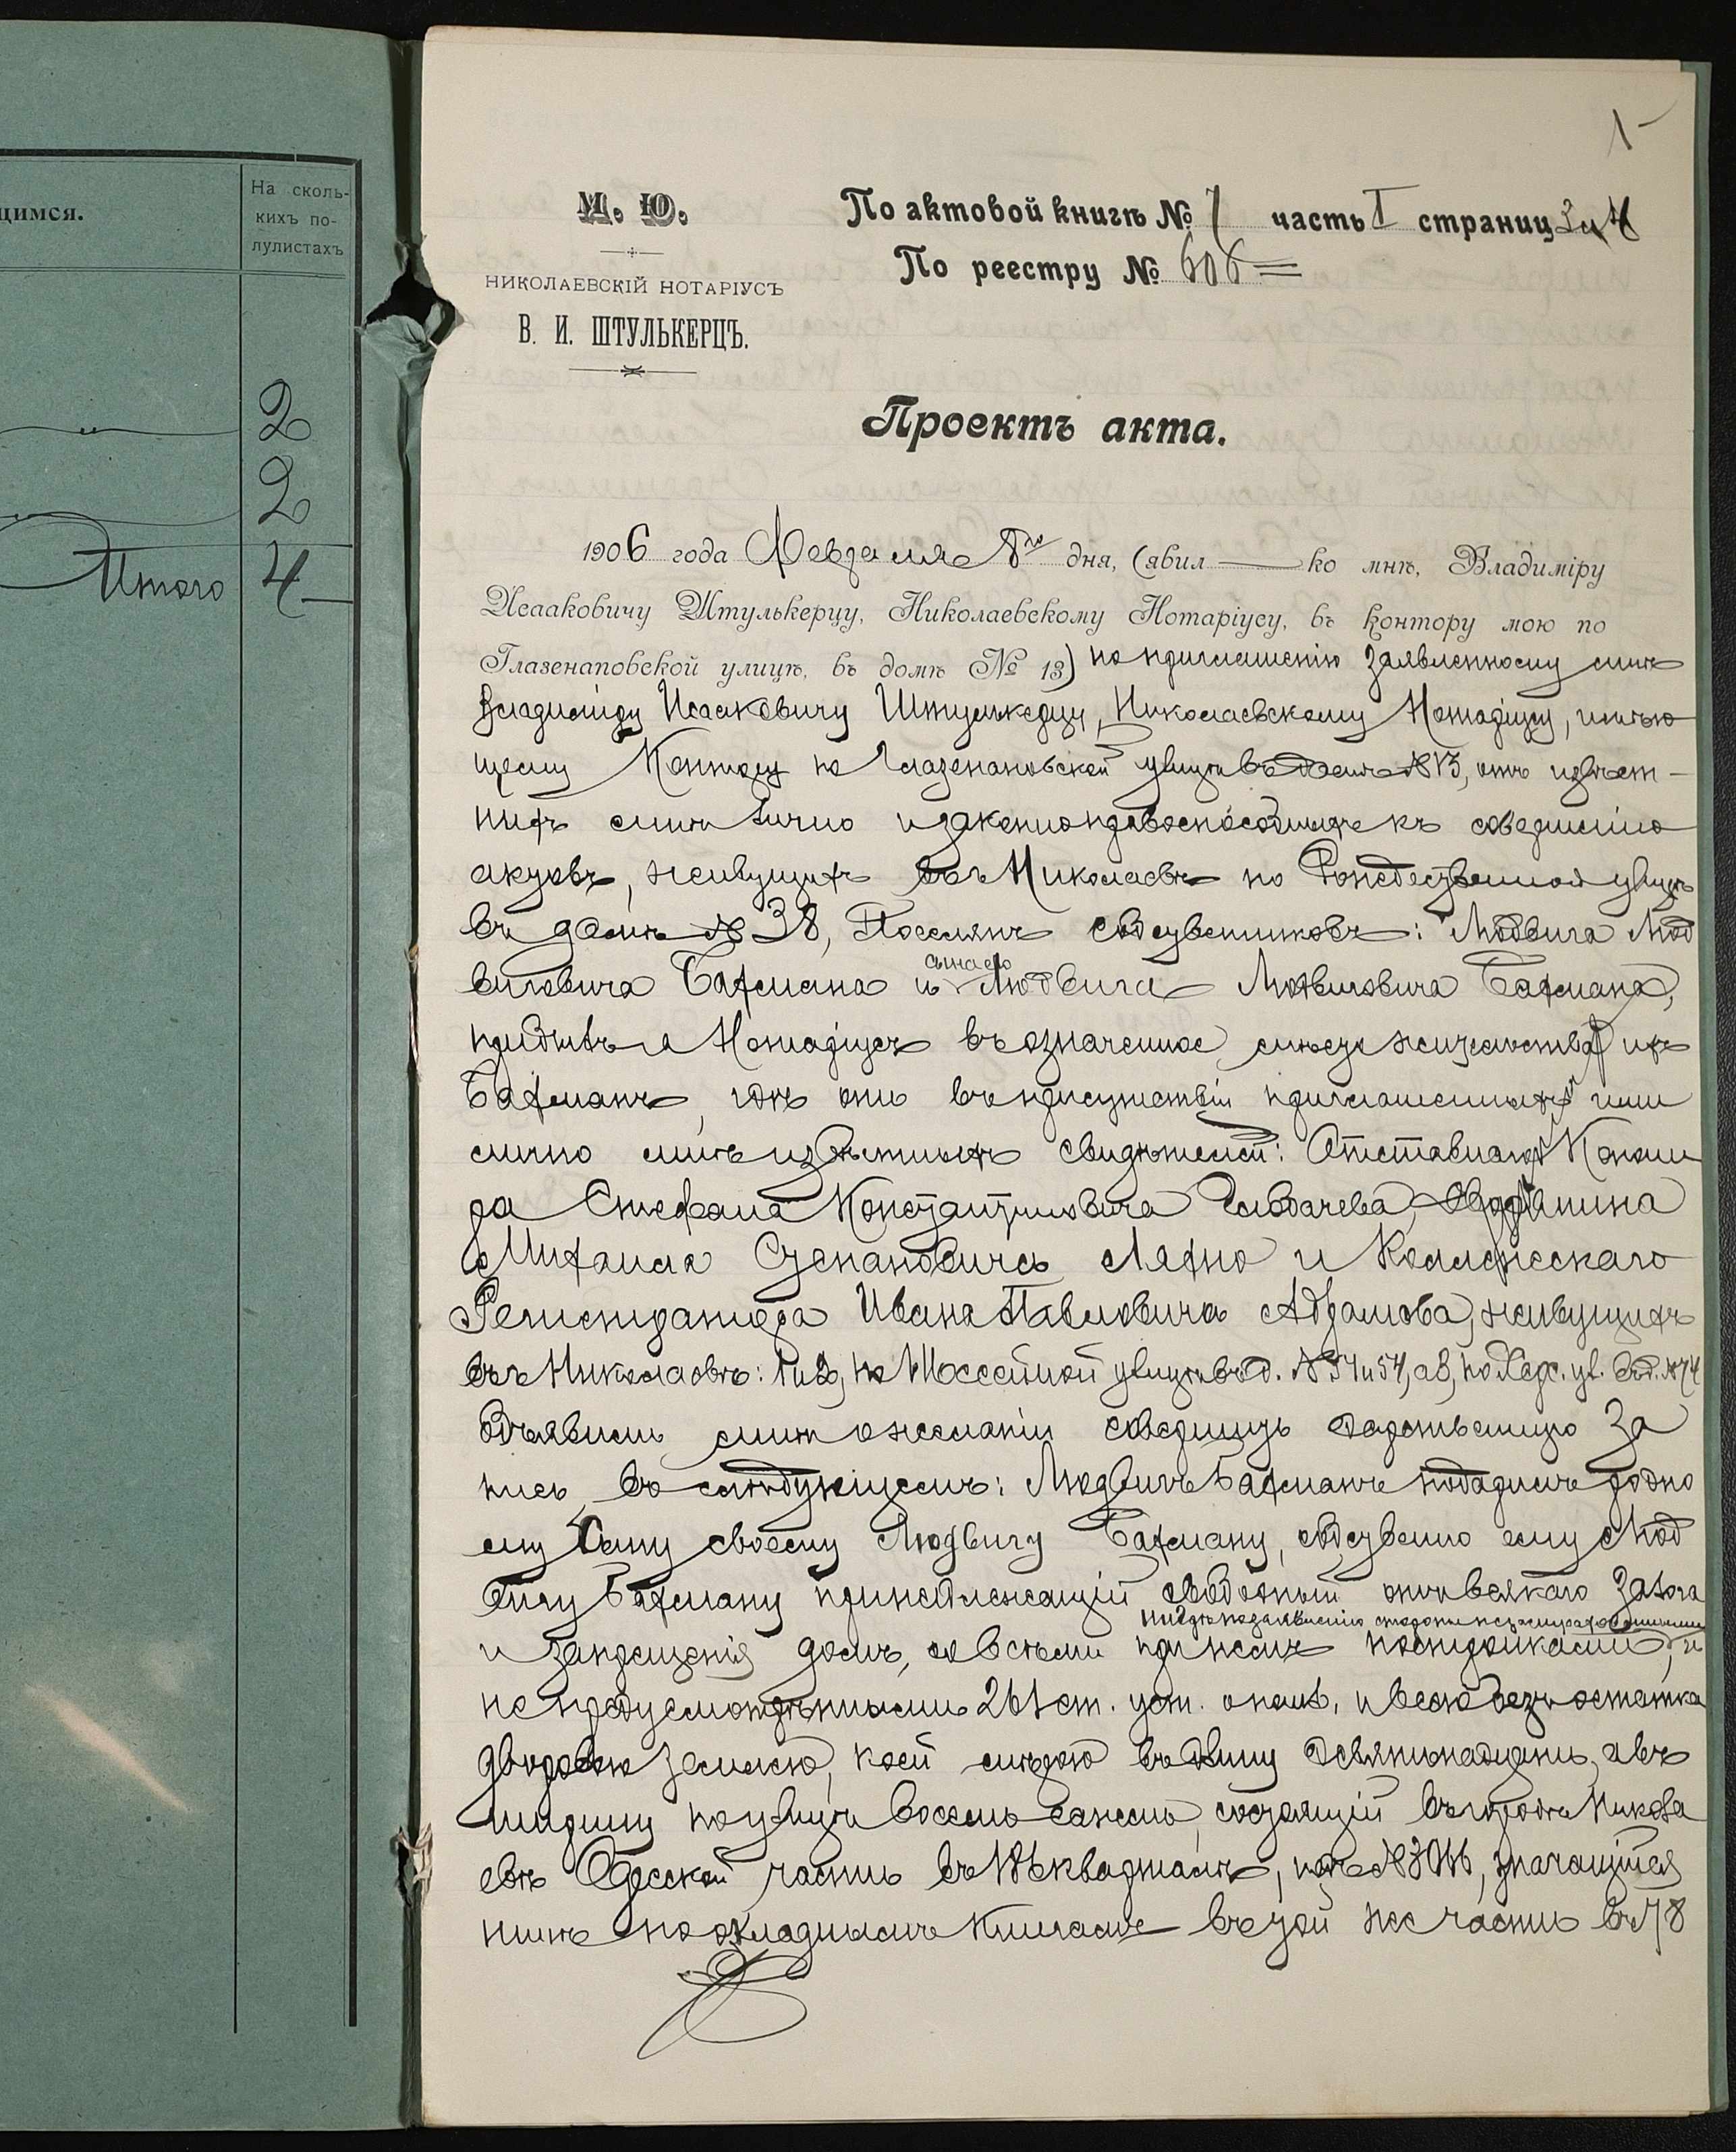 щимся.
На сколь-
кихъ по-
лулистахъ
2
2
Итого 4
1
М. Ю.
НИКОЛАЕВСКІЙ НОТАРІУСЪ
В. И. ШТУЛЬКЕРЦЪ.
По актовой книгѣ № 7 часть I страниц 3 и 4
По реестру № 606
Проектъ акта.
1906 года Февраля 8го дня, (явил ко мнѣ, Владиміру
Исааковичу Штулькерцу, Николаевскому Нотаріусу, въ контору мою по
Глазенаповской улицѣ, въ домѣ № 13) по приглашенію заявленному мнѣ
Владиміру Исааковичу Штулькерцу, Николаевскому Нотаріусу, имѣю
щему Контору по Глазенаповской улицѣ въ домѣ № 13, отъ извѣст-
ныхъ мнѣ лично и законноправоспособныхъ къ совершенію
актовъ, живущихъ въ г. Николаевѣ по Рождественской улицѣ
въ домѣ № 38, Поселянъ собственниковъ: Людвига Люд
виговича Бахмана и сына его Людвига Людвиговича Бахмана,
прибылъ я Нотаріусъ въ означенное мѣсто жительства ихъ
Бахманъ, гдѣ они въ присутствіи приглашенныхъ ими
лично мнѣ извѣстныхъ свидѣтелей: Отставного
Стефана Константиновича
Михаила Степановича Ляхно и Коллежскаго
Регистратора Ивана Павловича Абрамова, живущихъ
въ г. Николаевѣ: 1 и 2, по Шоссейной улицѣ въ д. № 54 и 54, а 3, по Херс. ул. въ д. № 74
объявили мнѣ о желаніи совершить дарственную за
пись въ слѣдующемъ: Людвигъ Бахманъ подарилъ родно
му сыну своему Людвигу Бахману, собственно ему Люд
вигу Бахману принадлежащій свободный отъ всякаго залога
и запрещенія домъ, со всѣми при немъ постройками, и
не предусмотрѣнными 261 ст. уст. о пошл. и всею безъ остатка
дворовою землею, коей мѣрою въ длину девятнадцать, а въ
ширину по улицѣ восемь сажень, состоящій въ городѣ Никола
евѣ Одесской части въ кварталѣ, подъ № значащійся
нынѣ по окладнымъ книгамъ въ той же части въ 78